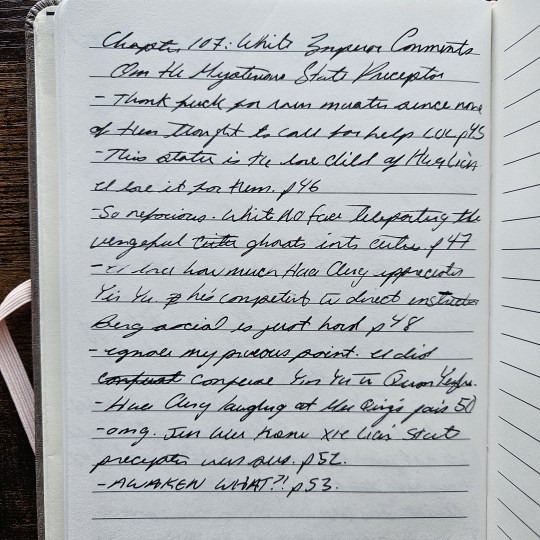 Chapter 107: White Emperor Comments
On the Mysterious State Preceptor
- Thank fuck for since none
of them thought to call for help LOL p45
- This statue is the love child of HuaLian
I love it for them. p46
- So nefarious. White No Face teleporting the
vengeful ghosts into p47
- I love how much Hua Cheng appreciates
Yin Yu he's competent to direct
Being social is just hard p48
- ignore my previous point. I did
Yin Yu to Quan Yizhen.
- Hua Cheng laughing at Mu Qing's pain 50
- omg. Jun Wu knew Xie Lian's State
preceptor was sus. p52.
- AWAKEN WHAT?! p53.